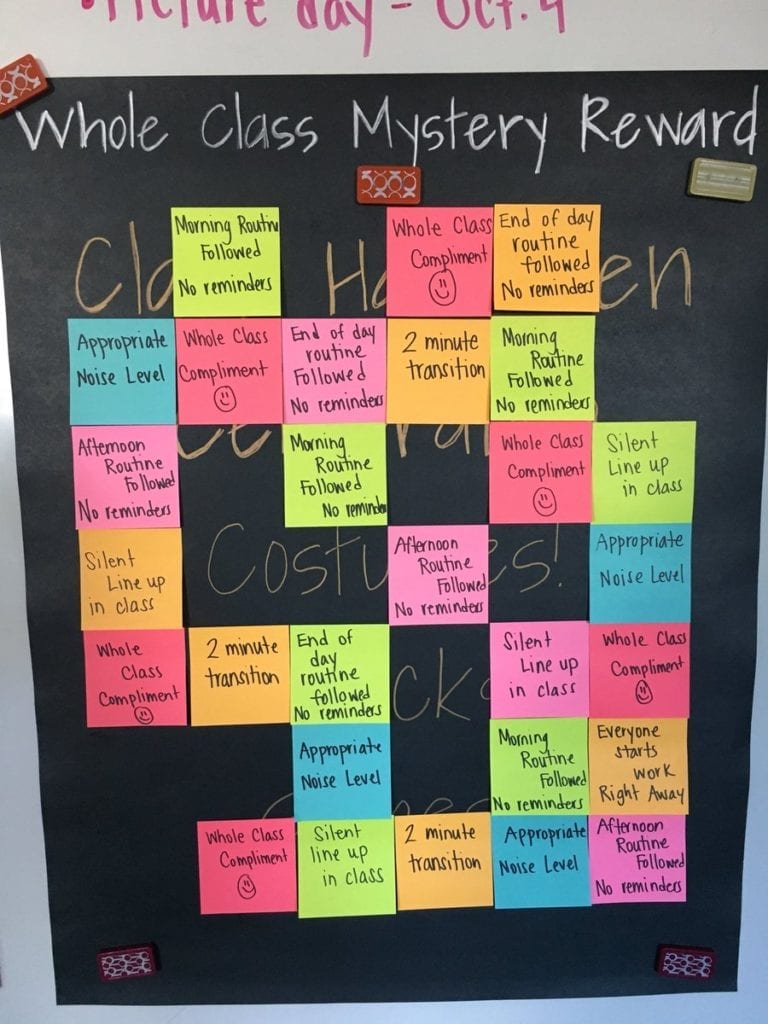 •Picture day - Oct. 4
Whole Class Mystery Reward
Morning Routine
Followed
No reminders
Whole Class
Compliment
End of day
routine
followed
No reminders
Appropriate
Noise Level
Whole Class
Compliment
End of day
routine
Followed
No reminders
2 minute
transition
Morning
Routine
Followed
No reminders
Afternoon
Routine
Followed
No reminders
Morning
Routine
Followed
No reminders
Whole Class
Compliment
Silent
Line up
in class
Silent
Line up
in class
Afternoon
Routine
Followed
No reminders
Appropriate
Noise Level
Whole
Class
Compliment
2 minute
transition
End of
day
routine
followed
No reminders
Silent
Line up
in class
Whole Class
Compliment
Appropriate
Noise Level
Morning
Routine
Followed
No reminders
Everyone
starts
work
Right Away
Whole Class
Compliment
Silent
line up
in class
2 minute
transition
Appropriate
Noise Level
Afternoon
Routine
Followed
No reminders